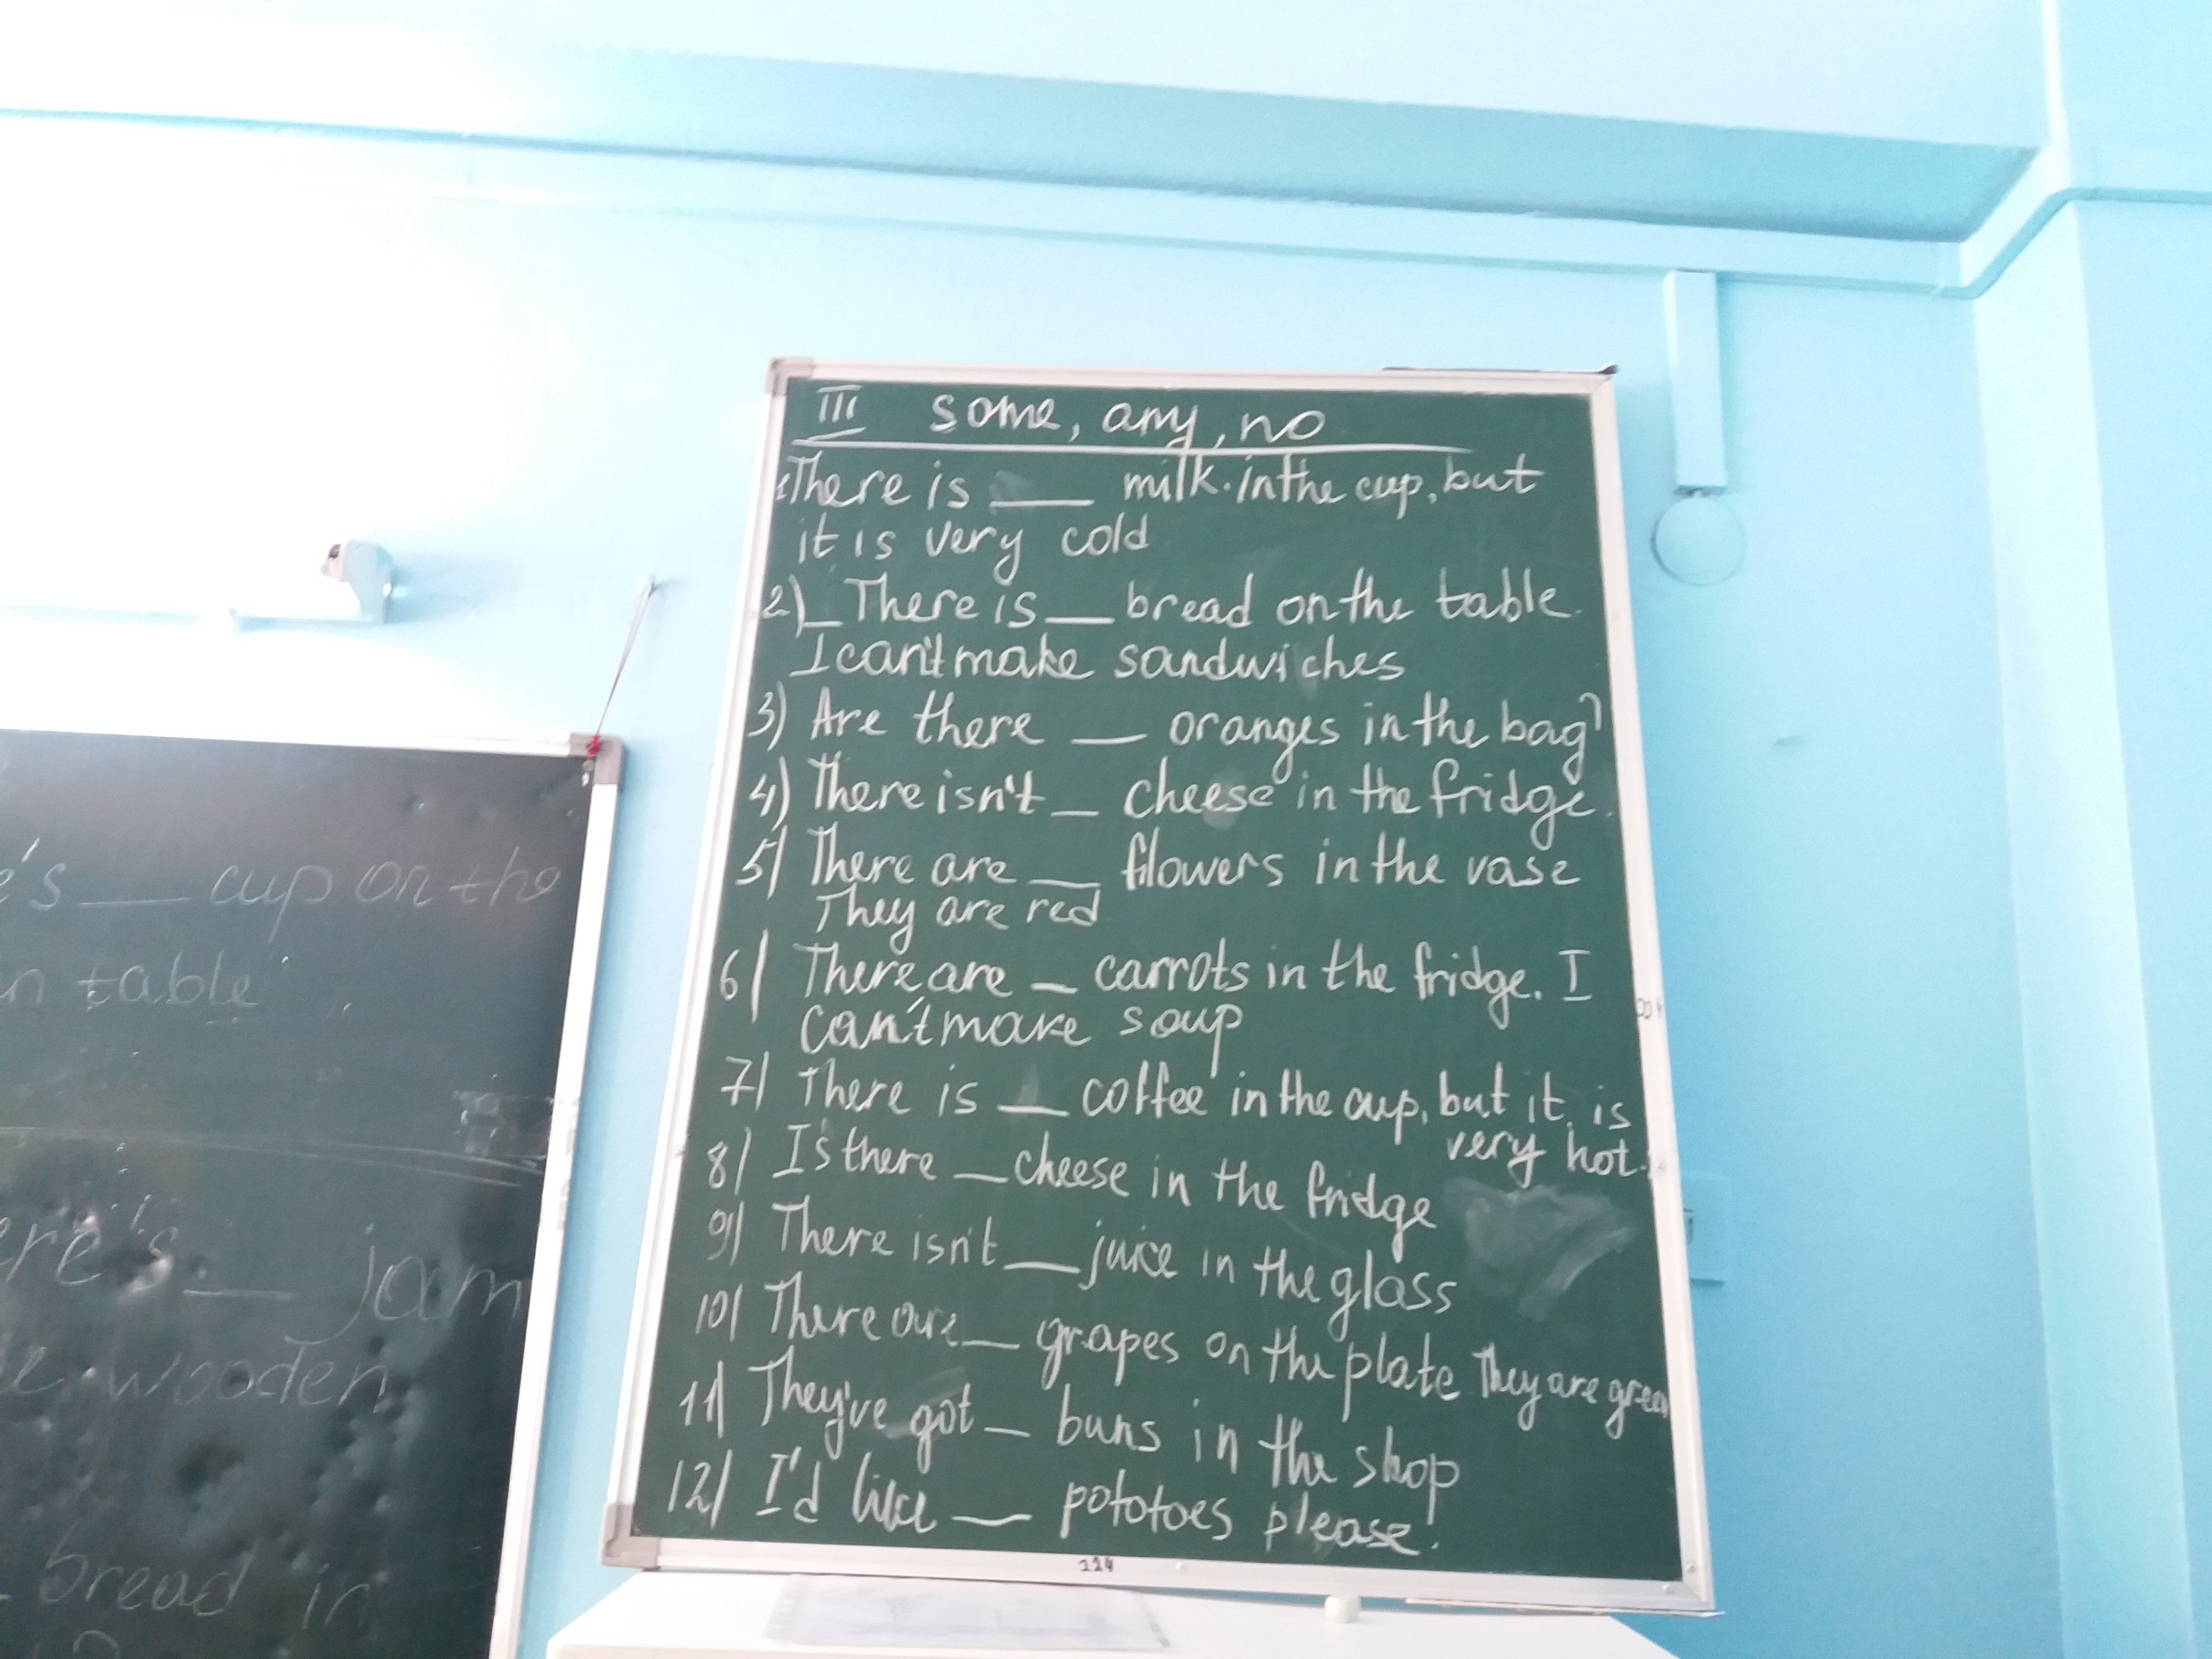 III some, any, no
1. There is ___ milk. in the cup, but
it is very cold
2) _ There is __ bread on the table.
I can't make sandwiches
3) Are there __ oranges in the bag?
4) There isn't _ cheese in the fridge.
5) There are __ flowers in the vase
They are red
6) There are _ carrots in the fridge. I
can't make soup
7) There is __ coffee in the cup, but it is
very hot.
8) Is there __ cheese in the fridge
9) There isn't __ juice in the glass
10) There are __ grapes on the plate They are green
11) They've got _ buns in the shop
12) I'd like __ pototoes please.
114
e's ___ cup on the
n table
ere's ___ jam
e wooden
bread in